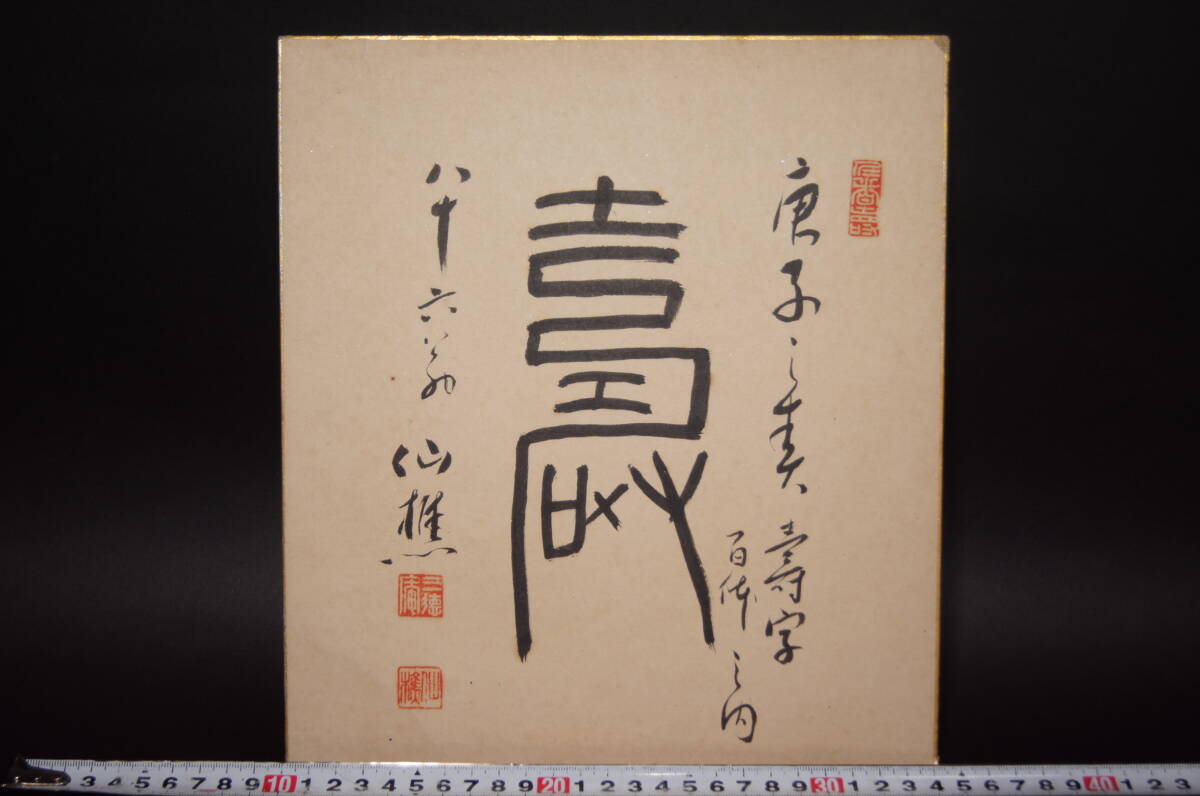 庚子之春 壽字
百体之内
壽
八十六翁 仙樵
三徳庵
仙樵
3 4 5 6 7 8 9 10 1 2 3 4 5 6 7 8 9 20 1 2 3 4 5 6 7 8 9 30 1 2 3 4 5 6 7 8 9 40 1 2 3